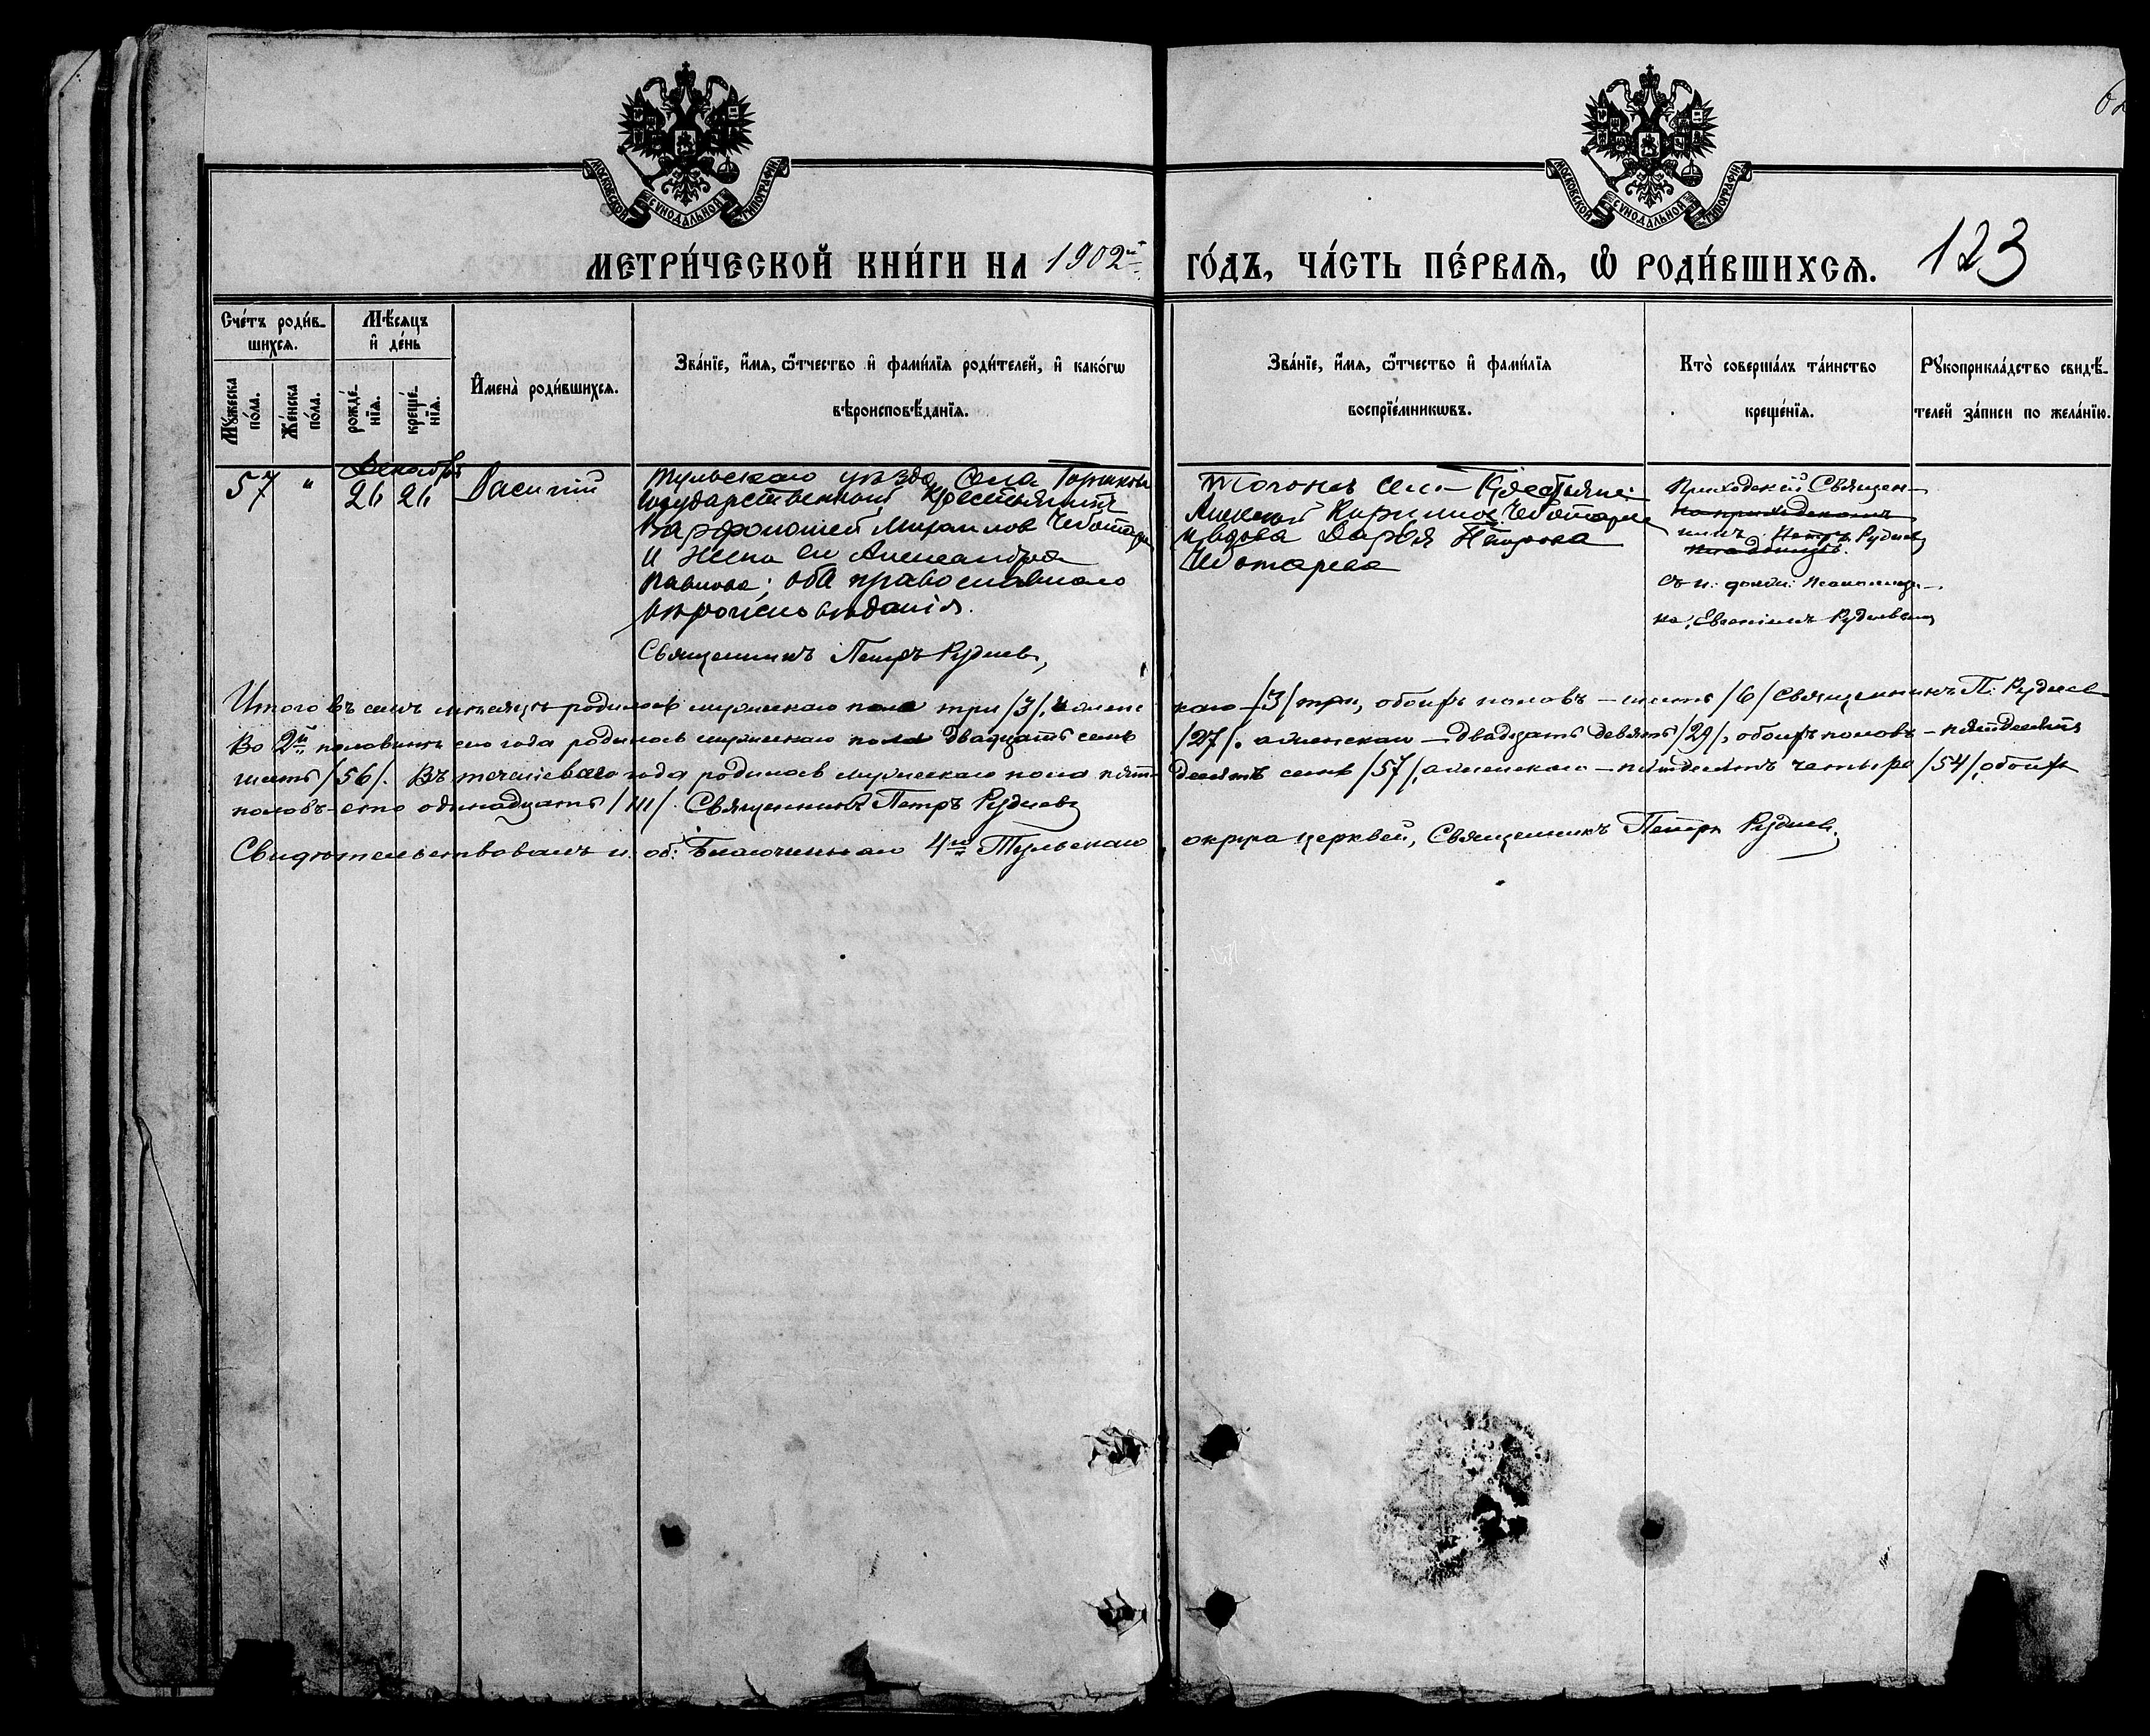 МОСКОВСКОЙ СѴНОДАЛЬНОЙ ТИПОГРАФІИ
МОСКОВСКОЙ СѴНОДАЛЬНОЙ ТИПОГРАФІИ
МЕТРИ́ЧЕСКОЙ КНИ́ГИ НА 1902й ГО́ДЪ, ЧА́СТЬ ПЕ́РВАѦ, Ѽ РОДИ́ВШИХСѦ. 123
Сче́тъ роди́в-
шихсѧ.
Мꙋ́жеска по́ла.
Же́нска по́ла.
Мѣ́сѧцъ
и҆ де́нь
рожде́-
нїѧ.
креще́-
нїѧ.
И҆мена̀ роди́вшихсѧ.
Зва́нїе, и҆́мѧ, ѻ҆́тчество и҆ фами́лїѧ роди́телей, и҆ како́гѡ
вѣроисповѣ́данїѧ.
Зва́нїе, и҆́мѧ, ѻ҆́тчество и҆ фами́лїѧ
воспрїе́мникѡвъ.
Кто̀ соверша́лъ та́инство
креще́нїѧ.
Рꙋкоприкла́дство свидѣ́-
телей за́писи по жела́нїю.
57 " Декабрь 26 26 Василій
Тульскаго уѣзда Села
Государственный Крестьянинъ
Варфоломей Михаилов
и жена его Александра
Павлова; оба православнаго
вѣроисповѣданія.
Священникъ Петръ Руднев,
Тогоже села Крестьяне:
Алексей Чеботарев
и вдова Дарья Петрова
Чеботарева
Приходскій Священ-
никъ Петръ Руднев
съ и. долж. псаломщи-
ка, Евгеніемъ Рудневым
Итого въ семъ мѣсяцѣ родилось мужескаго пола три /3/, женс каго /3/ три, обоихъ половъ – шесть /6/ Священникъ П. Руднев
Во 2й половинѣ сего года родилось мужескаго пола двадцать семь /27/, а женскаго – двадцать девять /29/, обоихъ половъ – пятьдесятъ
шесть /56/. Въ теченіе всего года родилось мужескаго пола пять десятъ семь /57/, а женскаго – пятьдесятъ четыре /54/, обоихъ
половъ – сто одинадцать /111/. Священникъ Петръ Рудневъ
Свидѣтельствовалъ и. об. Благочиннаго 4го Тульскаго округа церквей, Священникъ Петръ Руднев.